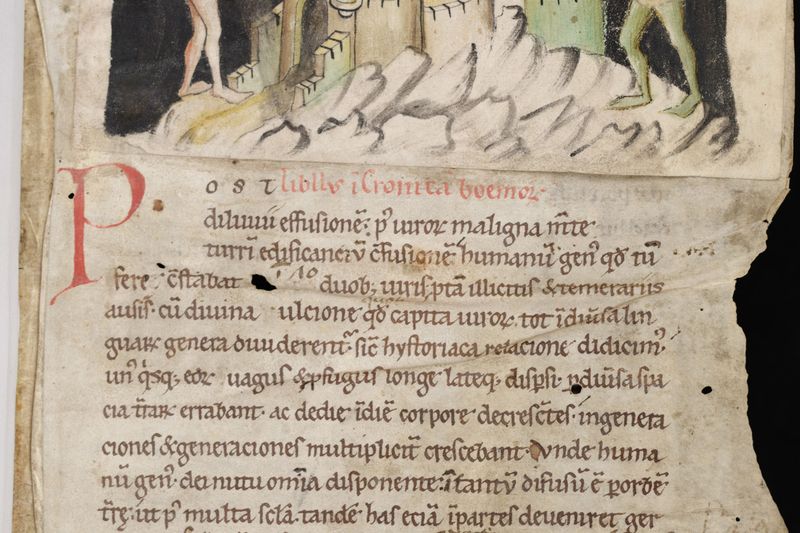 POST libell' i Cronica boemor
diluuii effusionē; p' uiror maligna m̄te
turrī edificanciū c̄fusionē humanū gen' qđ tū
fere c̄stabat duob; uiris p tā illicitis & temerariis
ausis cū diuina ulcione qđ capita uiror tot ī diūsa lin
guarꝝ genera diuiderent' sic̄ hystoriaca relacione didicim'
un' q'sq; eor uagus & pfugus longe lateq; dispsi p diūsa spa
cia t̄rarꝝ errabant ac de die ī diē corpore decresc̄tes in genera
ciones & generaciones multiplicit̄ crescebant Vnde huma
nū gen' dei nutu om̄ia disponente ī tantū difusū ē p orbē
t̄rę ut p' multa sc̄la tandē has eciā ī partes deueniret ger